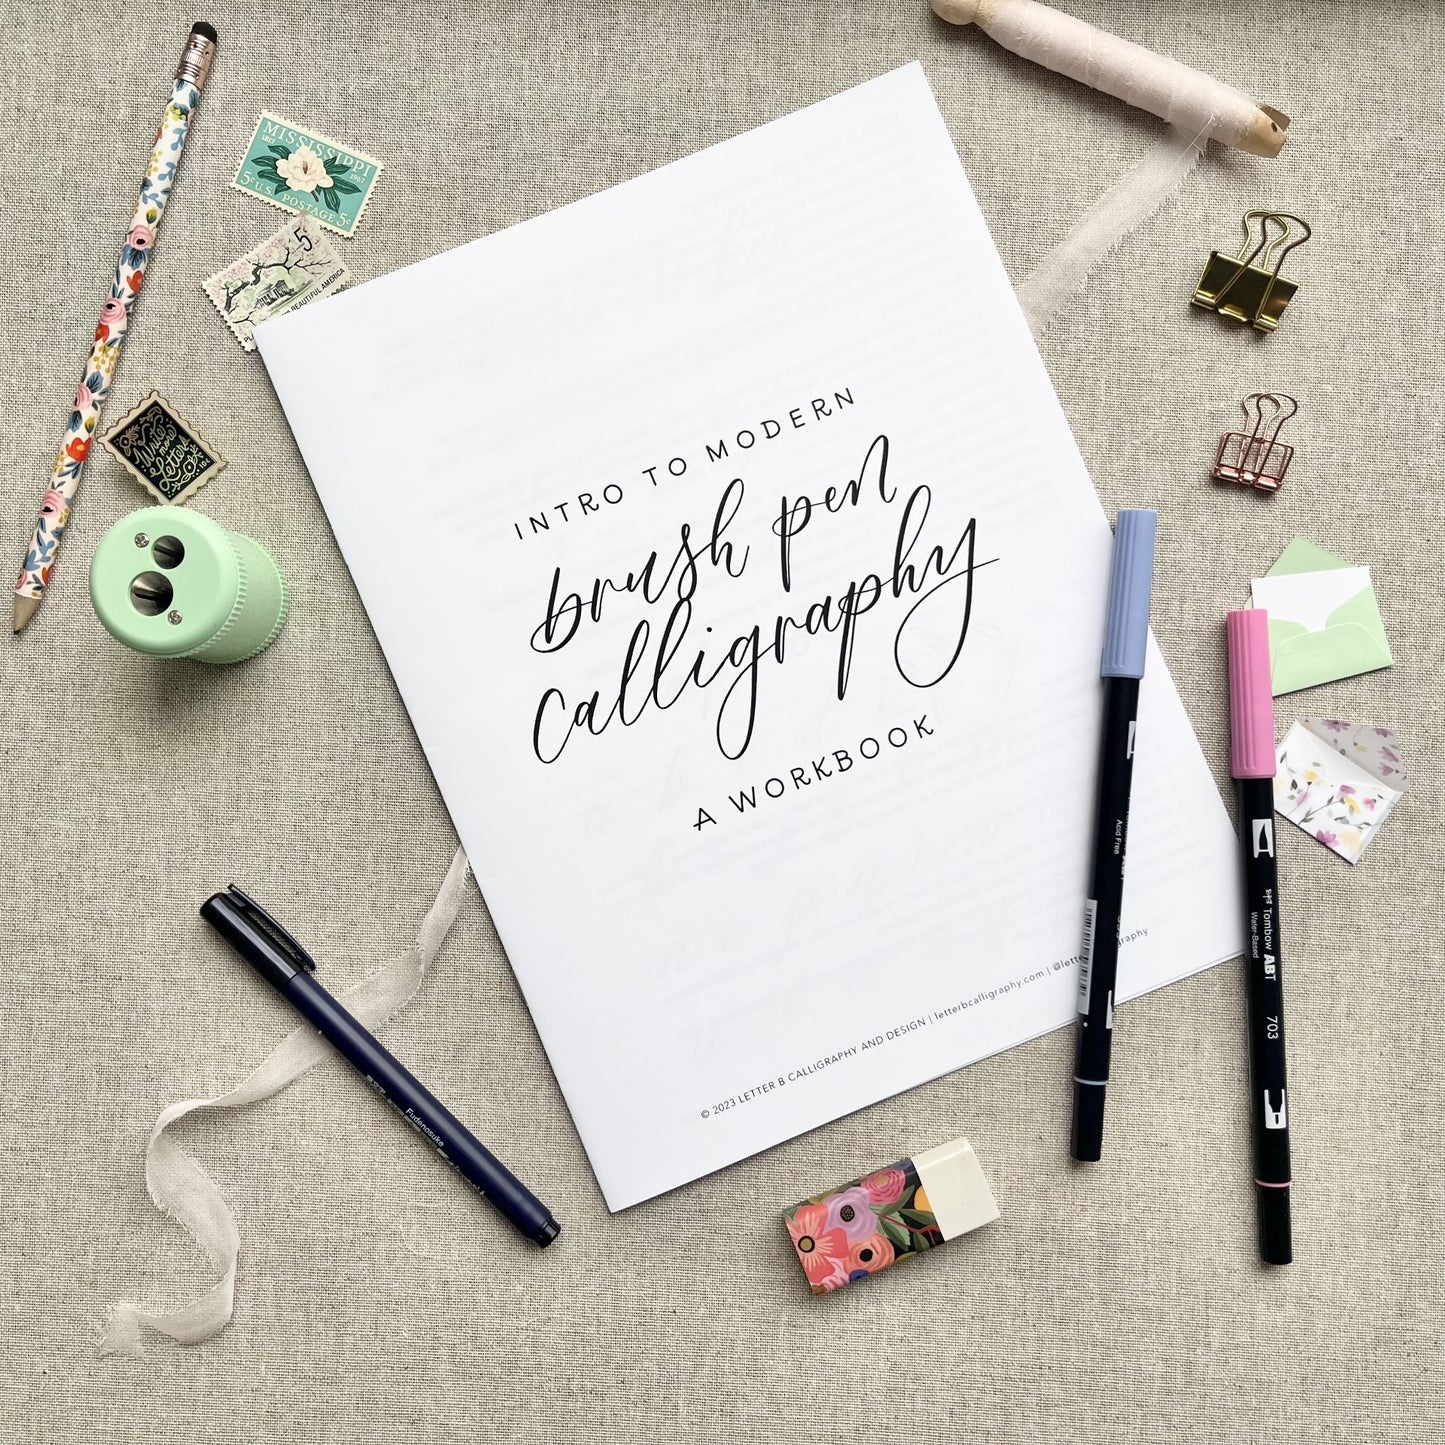 MISSISSIPPI
1817
1967
5c U.S. POSTAGE 5c
5
BEAUTIFUL AMERICA
Write
more
Letters
INTRO TO MODERN
brush pen
calligraphy
A WORKBOOK
© 2023 LETTER B CALLIGRAPHY AND DESIGN | letterbcalligraphy.com | @lette
graphy
Acid Free
Tombow ABT
Water-Based
703
Fudenosuke